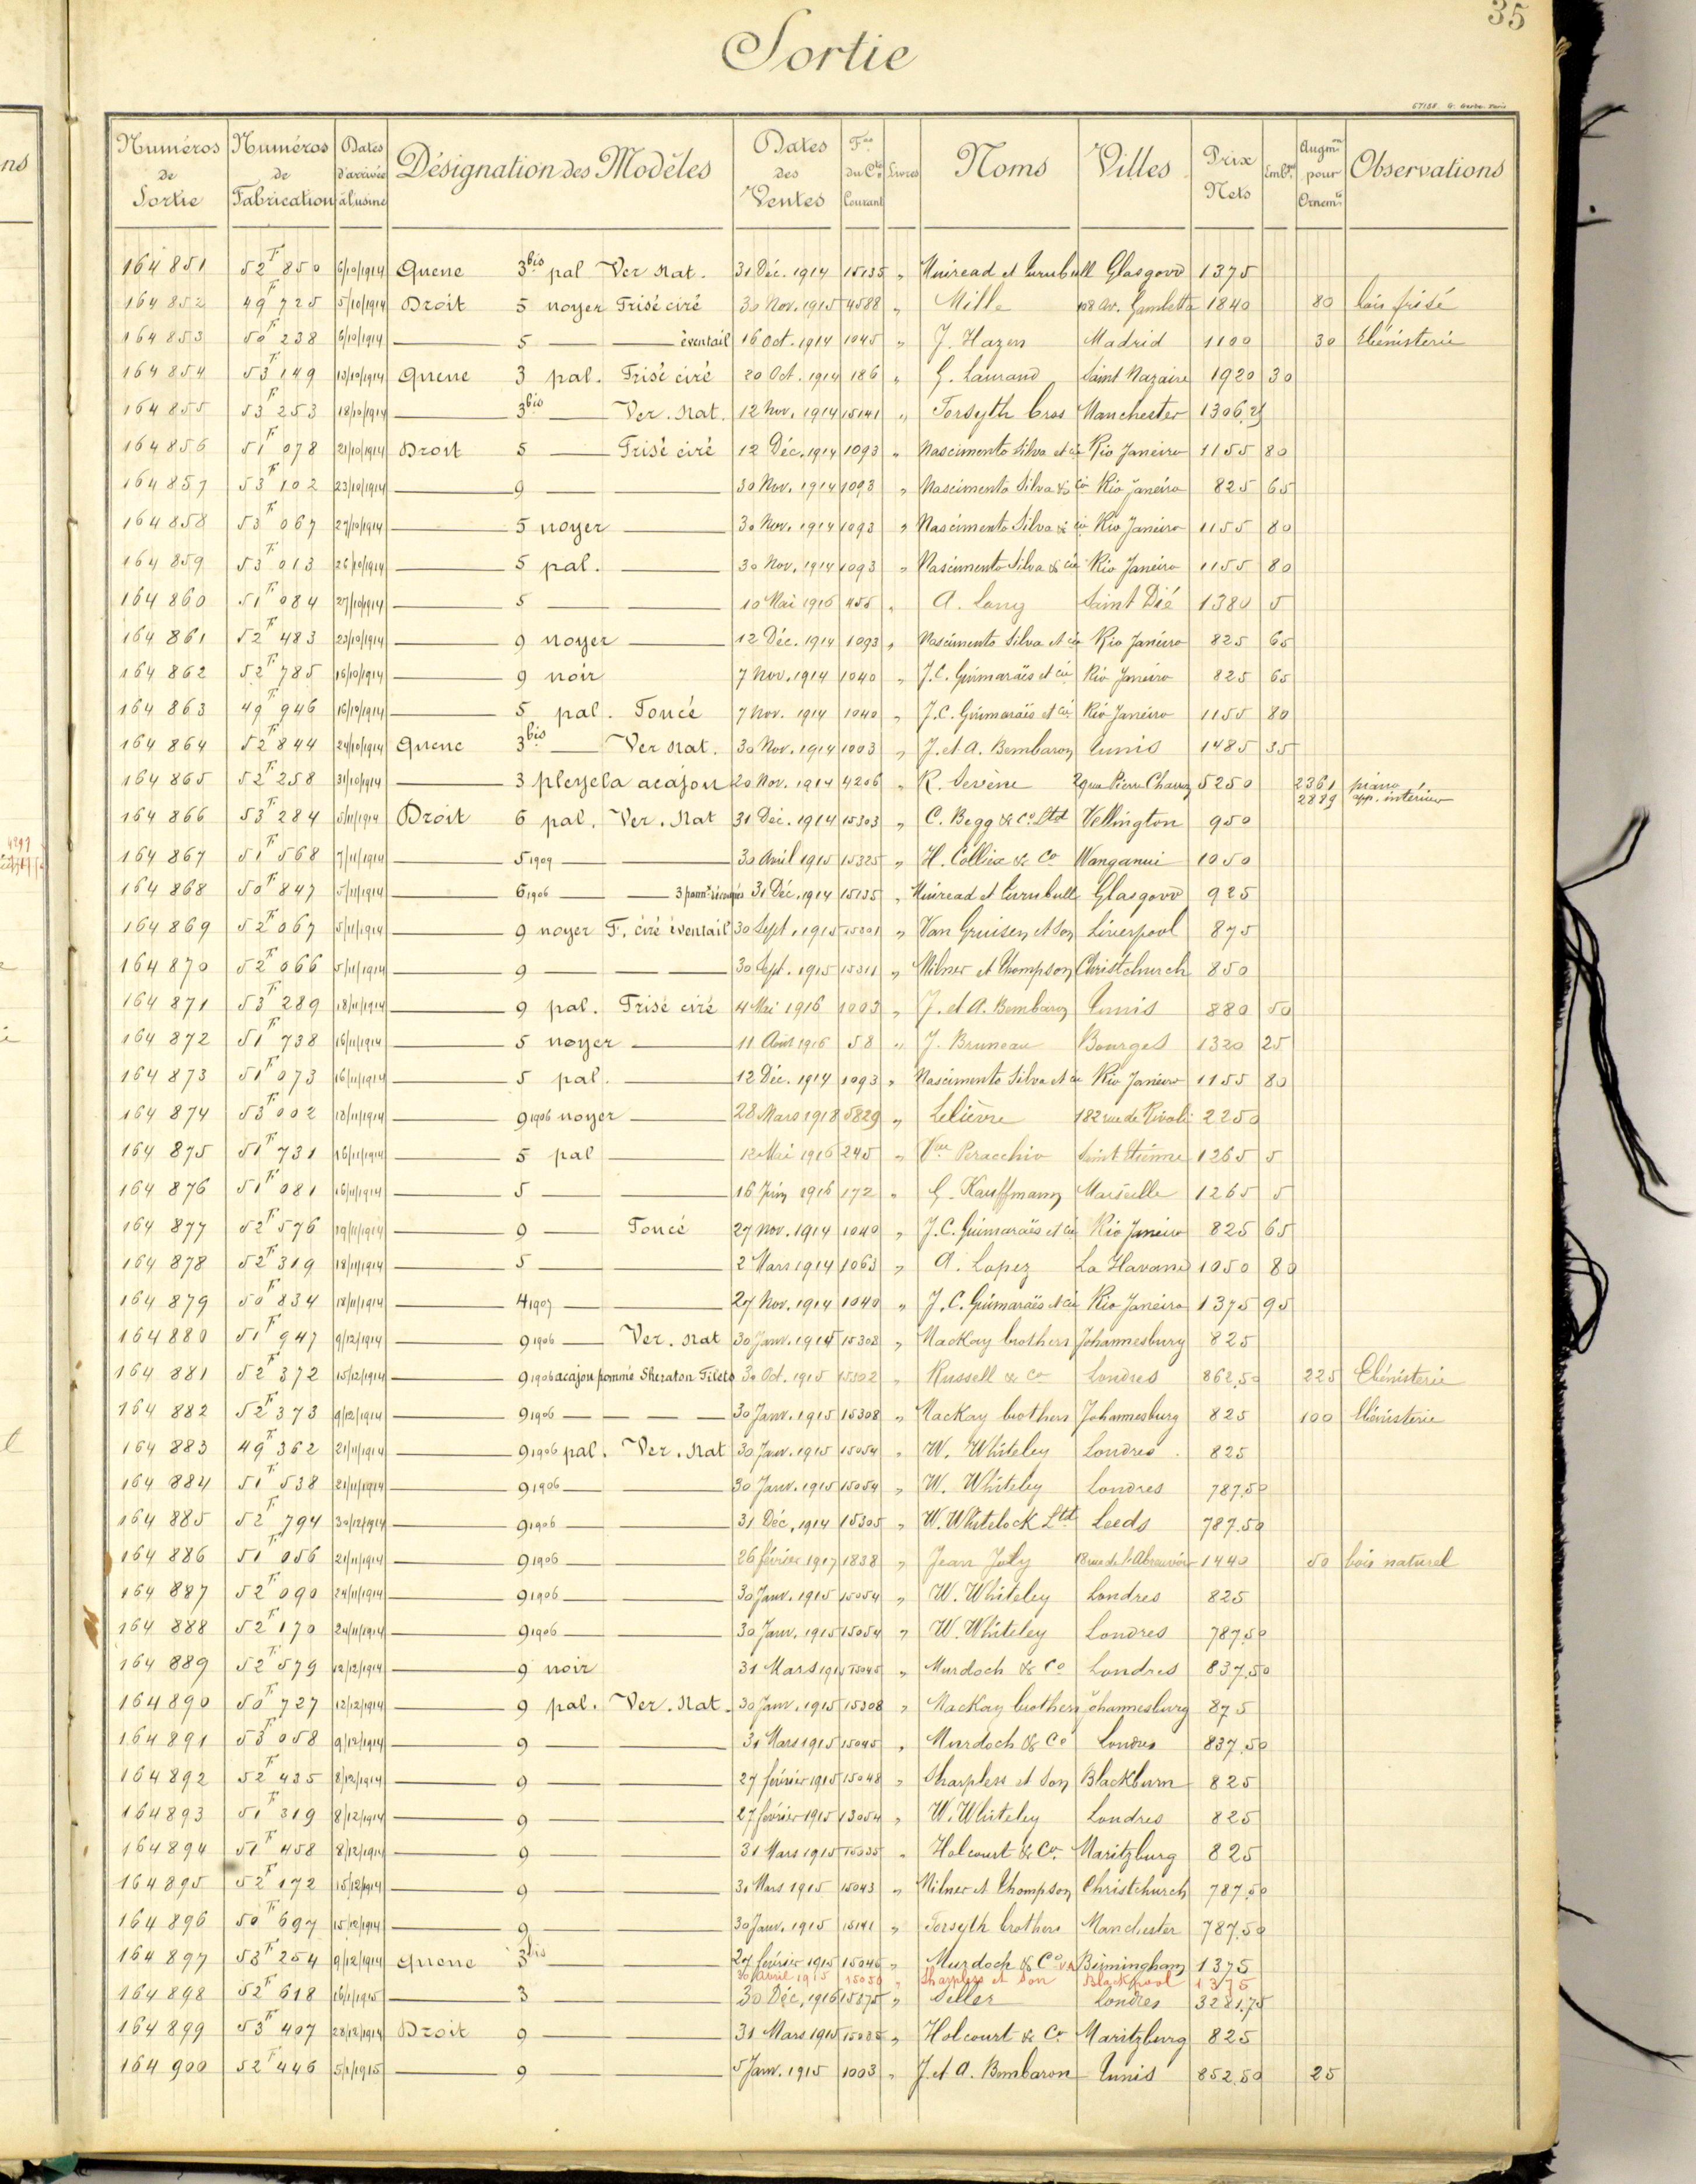 35
Sortie
57188. G. Barba. Paris
Numéros de Sortie | Numéros de Fabrication | Dates d'arrivée à l'usine | Désignation des Modèles | Dates des Ventes | Fos du Cte Courant | Livres | Noms | Villes | Prix Nets | Emb. | Augm. pour Ornem. | Observations
164 851 52 F 850 6/10/1914 Queue 3 bis pal Ver Nat. 31 Déc. 1914 15135 " Muiread et Turnbull Glasgow 1375
164 852 49 F 725 5/10/1914 Droit 5 noyer Frisé ciré 30 Nov. 1915 4588 " Mille 108 Av. Gambetta 1840 80 bois frisé
164 853 50 F 238 6/10/1914 — 5 — — éventail 16 Oct. 1914 1045 " J. Hazen Madrid 1100 30 Ebénisterie
164 854 53 F 149 13/10/1914 Queue 3 pal. Frisé ciré 20 Oct. 1914 186 " G. Laurand Saint Nazaire 1920 30
164 855 53 F 253 18/10/1914 — 3 bis — Ver. Nat. 12 Nov. 1914 15141 " Forsyth bros Manchester 1306.25
164 856 51 F 078 21/10/1914 Droit 5 — Frisé ciré 12 Déc. 1914 1093 " Nascimento Silva et cie Rio Janeiro 1155 80
164 857 53 F 102 23/10/1914 — 9 — — 30 Nov. 1914 1093 " Nascimento Silva & cie Rio Janeiro 825 65
164 858 53 F 067 27/10/1914 — 5 noyer — 30 Nov. 1914 1093 " Nascimento Silva & cie Rio Janeiro 1155 80
164 859 53 F 013 26/10/1914 — 5 pal. — 30 Nov. 1914 1093 " Nascimento Silva & cie Rio Janeiro 1155 80
164 860 51 F 084 27/10/1914 — 5 — — 10 Mai 1916 455 " A. Lang Saint Dié 1380 5
164 861 52 F 483 23/10/1914 — 9 noyer — 12 Déc. 1914 1093 " Nascimento Silva et cie Rio Janeiro 825 65
164 862 52 F 785 16/10/1914 — 9 noir 7 Nov. 1914 1040 " J.C. Guimaraës et cie Rio Janeiro 825 65
164 863 49 F 946 16/10/1914 — 5 pal. Foncé 7 Nov. 1914 1040 " J.C. Guimaraës et cie Rio Janeiro 1155 80
164 864 52 F 844 24/10/1914 Queue 3 bis — Ver Nat. 30 Nov. 1914 1003 " J. et A. Bembaron Tunis 1485 35
164 865 52 F 258 31/10/1914 — 3 pleyela acajou 20 Nov. 1914 4206 " R. Sevène 5250 2361 piano
2889 app. intérieur
164 866 53 F 284 5/11/1914 Droit 6 pal. Ver. Nat 31 Déc. 1914 15303 " C. Begg & Co Ltd Vellington 950
164 867 51 F 568 7/11/1914 — 5 1909 — — 30 Avril 1915 15325 " H. Collier & Co Wanganui 1050
164 868 50 F 847 5/11/1914 — 6 1906 — — 3 pannx découpés 31 Déc. 1914 15135 " Muiread et Turnbull Glasgow 925
164 869 52 F 067 5/11/1914 — 9 noyer F. ciré éventail 30 Sept. 1915 15201 " Van Gruisen et Son Liverpool 875
164 870 52 F 066 5/11/1914 — 9 — — — 30 Sept. 1915 15311 " Milner et Thompson Christchurch 850
164 871 53 F 289 18/11/1914 — 9 pal. Frisé ciré 4 Mai 1916 1003 " J. et A. Bembaron Tunis 880 50
164 872 51 F 738 16/11/1914 — 5 noyer — 11 Août 1916 58 " J. Bruneau Bourges 1320 25
164 873 51 F 073 16/11/1914 — 5 pal. — 12 Déc. 1914 1093 " Nascimento Silva et cie Rio Janeiro 1155 80
164 874 53 F 002 18/11/1914 — 9 1906 noyer — 28 Mars 1918 5829 " Lelièvre 182 rue de Rivoli 2250
164 875 51 F 731 16/11/1914 — 5 pal — 12 Mai 1916 245 " Vve Peracchio Saint Etienne 1265 5
164 876 51 F 081 16/11/1914 — 5 — — 16 Juin 1916 172 " G. Kauffmann Marseille 1265 5
164 877 52 F 576 19/11/1914 — 9 — Foncé 27 Nov. 1914 1040 " J.C. Guimaraës et cie Rio Janeiro 825 65
164 878 52 F 319 18/11/1914 — 5 — — 2 Mars 1914 1063 " A. Lopez La Havane 1050 80
164 879 50 F 834 18/11/1914 — 4 1907 — — 27 Nov. 1914 1040 " J.C. Guimaraës et cie Rio Janeiro 1375 95
164 880 51 F 947 9/12/1914 — 9 1906 — Ver. Nat 30 Janv. 1915 15308 " MacKay brothers Johannesburg 825
164 881 52 F 372 15/12/1914 — 9 1906 acajou pommé Sheraton Filets 30 Oct. 1915 15302 " Russell & Co Londres 862,50 225 Ebénisterie
164 882 52 F 373 9/12/1914 — 9 1906 — — — — 30 Janv. 1915 15308 " MacKay brothers Johannesburg 825 100 Ebénisterie
164 883 49 F 362 21/11/1914 — 9 1906 pal. Ver. Nat 30 Janv. 1915 15054 " W. Whiteley Londres 825
164 884 51 F 538 21/11/1914 — 9 1906 — — 30 Janv. 1915 15054 " W. Whiteley Londres 787.50
164 885 52 F 794 30/12/1914 — 9 1906 — — 31 Déc. 1914 15305 " W. Whitelock Ltd Leeds 787.50
164 886 51 F 056 21/11/1914 — 9 1906 — — 26 février 1917 1838 " Jean Joly 18 rue de l'Abreuvoir 1440 50 bois naturel
164 887 52 F 090 24/11/1914 — 9 1906 — — 30 Janv. 1915 15054 " W. Whiteley Londres 825
164 888 52 F 170 24/11/1914 — 9 1906 — — 30 Janv. 1915 15054 " W. Whiteley Londres 787.50
164 889 52 F 579 12/12/1914 — 9 noir 31 Mars 1915 15045 " Murdoch & Co Londres 837.50
164 890 50 F 727 12/12/1914 — 9 pal. Ver. Nat. 30 Janv. 1915 15308 " MacKay brothers Johannesburg 875
164 891 53 F 058 9/12/1914 — 9 — — 31 Mars 1915 15045 " Murdoch & Co Londres 837.50
164 892 52 F 435 8/12/1914 — 9 — — 27 février 1915 15048 " Sharpless et Son Blackburn 825
164 893 51 F 319 8/12/1914 — 9 — — 27 février 1915 13054 " W. Whiteley Londres 825
164 894 51 F 458 8/12/1914 — 9 — — 31 Mars 1915 15035 " Holcourt & Co. Maritzburg 825
164 895 52 F 172 15/12/1914 — 9 — — 31 Mars 1915 15043 " Milner et Thompson Christchurch 787.50
164 896 50 F 697 15/12/1914 — 9 — — 30 Janv. 1915 15141 " Forsyth brothers Manchester 787.50
164 897 53 F 254 9/12/1914 Queue 3 bis — — 27 février 1915 15046 " Murdoch & Co Birmingham 1375
30 Avril 1915 15050 " Sharpless et Son Blackpool 1375
164 898 52 F 618 16/1/1915 — 3 — — 30 Déc. 1916 15275 " Seller Londres 3281.75
164 899 53 F 407 28/12/1914 Droit 9 — — 31 Mars 1915 15035 " Holcourt & Co Maritzburg 825
164 900 52 F 446 5/1/1915 — 9 — — 5 Janv. 1915 1003 " J. et A. Bembaron Tunis 852.50 25